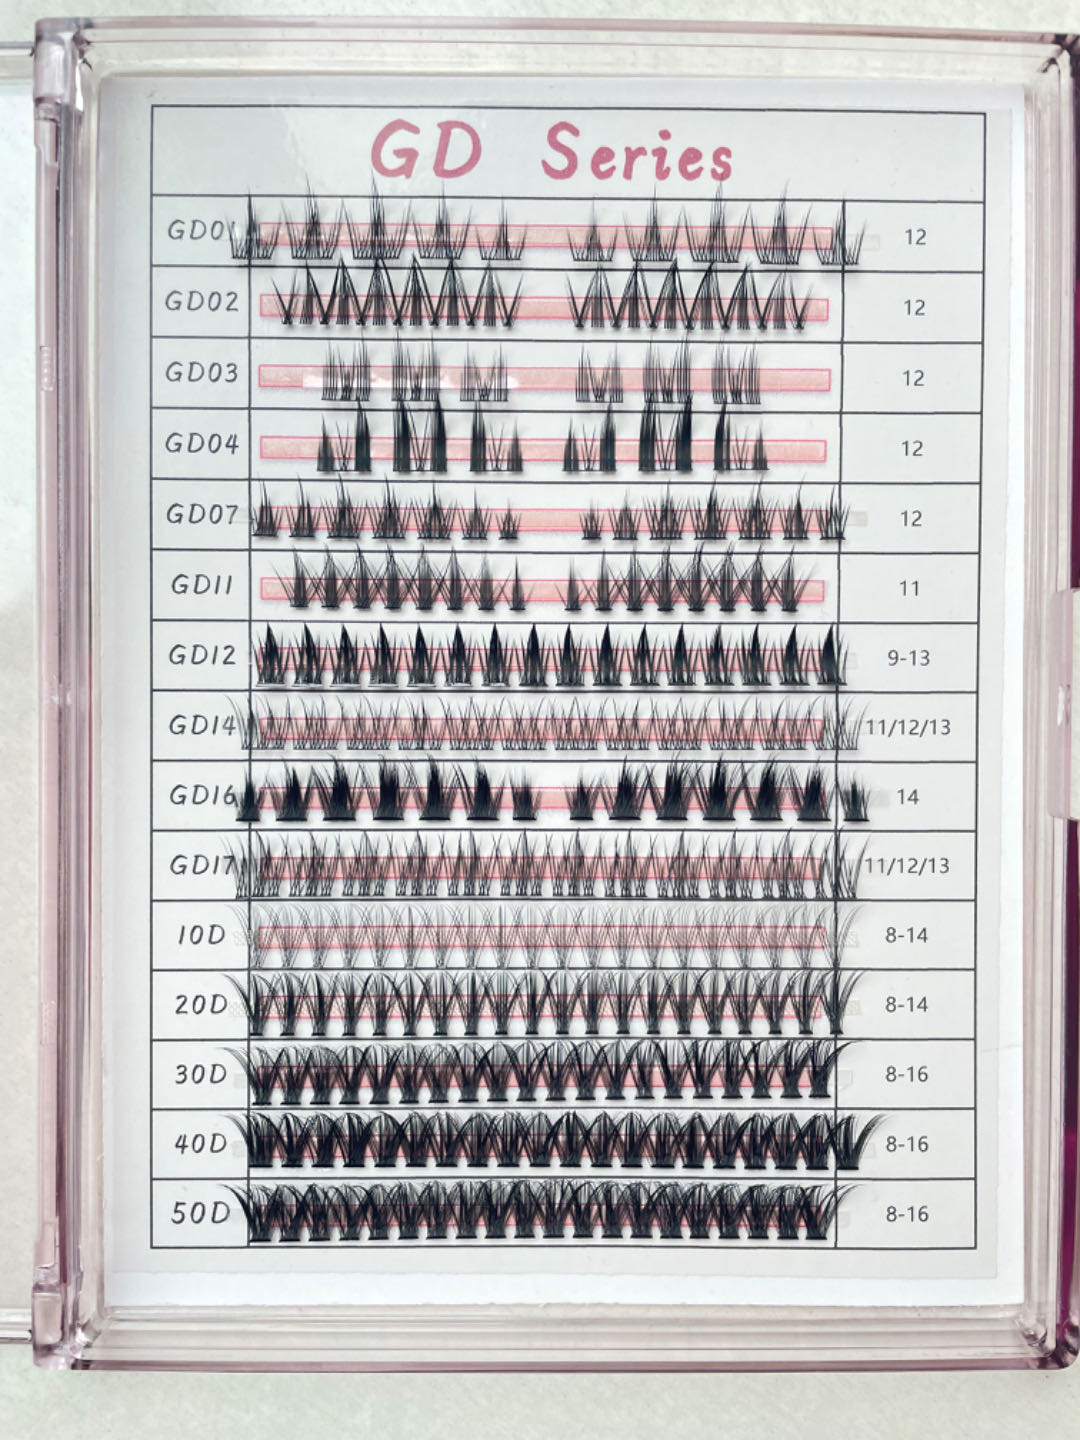 GD Series
GD01 12
GD02 12
GD03 12
GD04 12
GD07 12
GD11 11
GD12 9-13
GD14 11/12/13
GD16 14
GD17 11/12/13
10D 8-14
20D 8-14
30D 8-16
40D 8-16
50D 8-16